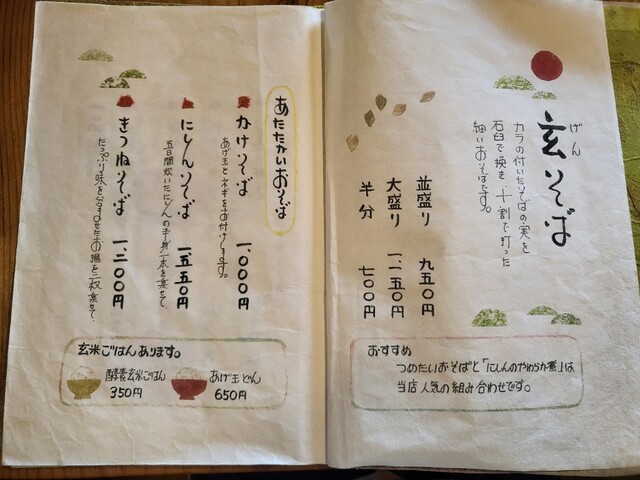 げん
玄そば
カラの付いたそばの実を
石臼で挽き、十割で打った
細いおそばです。
並盛り 九五〇円
大盛り 一、一五〇円
半分 七〇〇円
おすすめ
つめたいおそばと「にしんのやわらか煮」は
当店人気の組み合わせです。
あたたかいおそば
かけそば 一、〇〇〇円
あげ玉とネギをお付けします。
にしんそば 一、五五〇円
五日間炊いたにしんの半身一本を乗せて
きつねそば 一、二〇〇円
たっぷり味を含ませたお揚を二枚乗せて
玄米ごはんあります。
酵素玄米ごはん
350円
あげ玉どん
650円